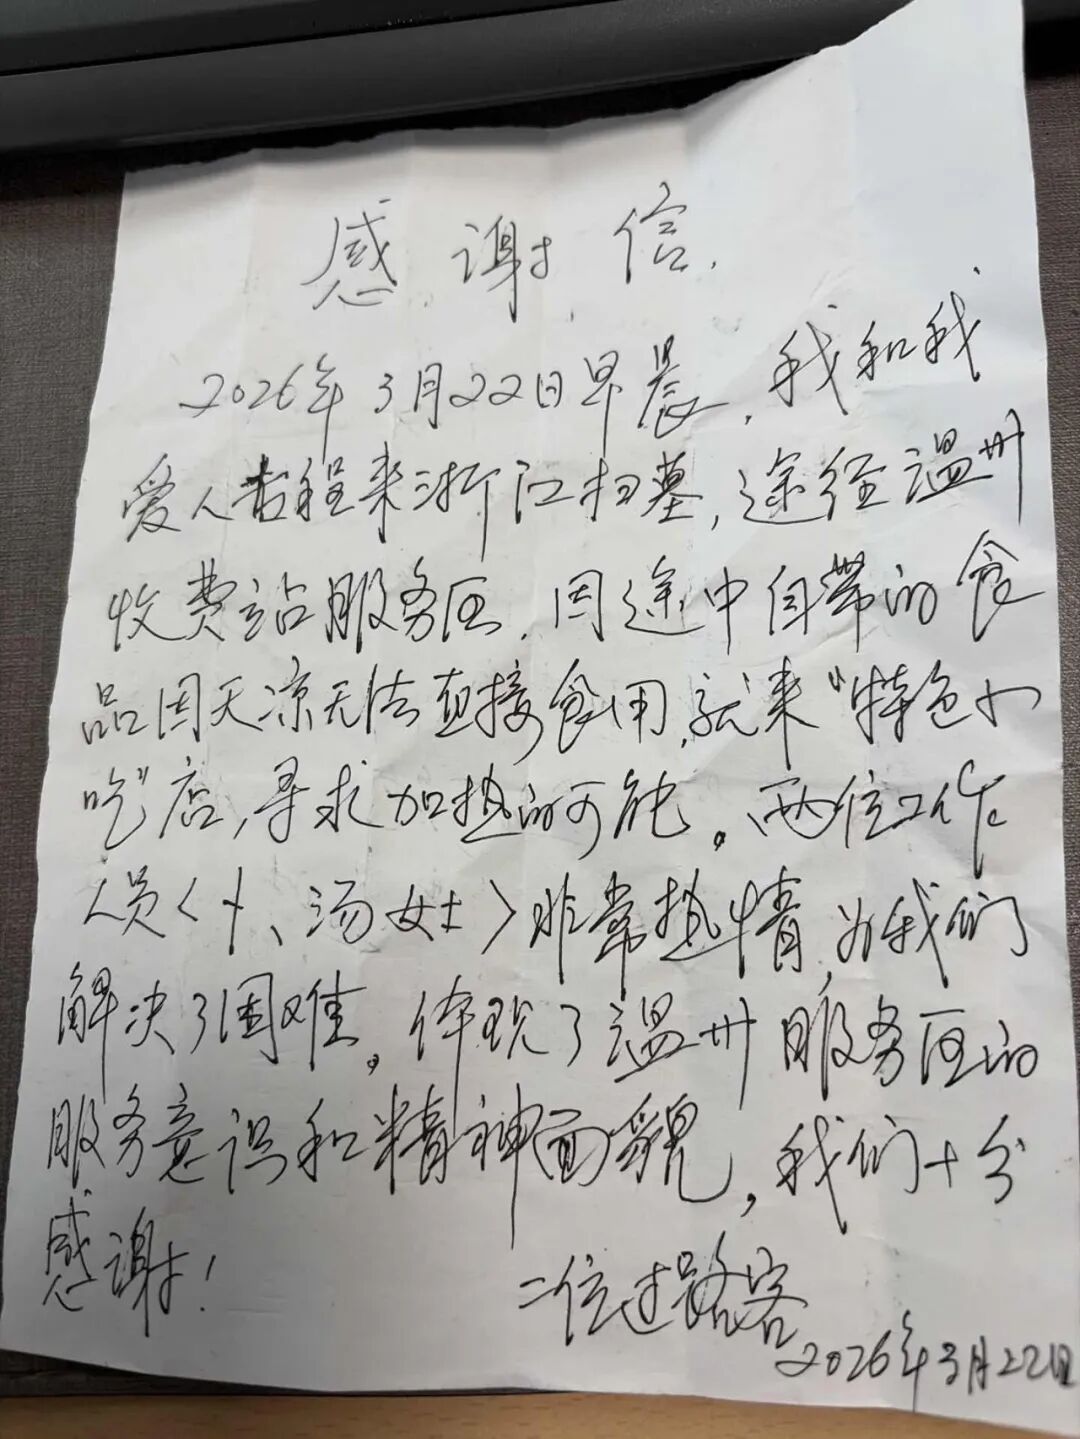 感谢信
2026年3月22日早晨，我和我
爱人专程来浙江扫墓，途经温州
收费站服务区，因途中自带的食
品因天凉无法直接食用，就来“特色小
吃”店，寻求加热的可能。两位工作
人员〈卜、汤女士〉非常热情，为我们
解决了困难。体现了温州服务区的
服务意识和精神面貌，我们十分
感谢！
二位过路客
2026年3月22日